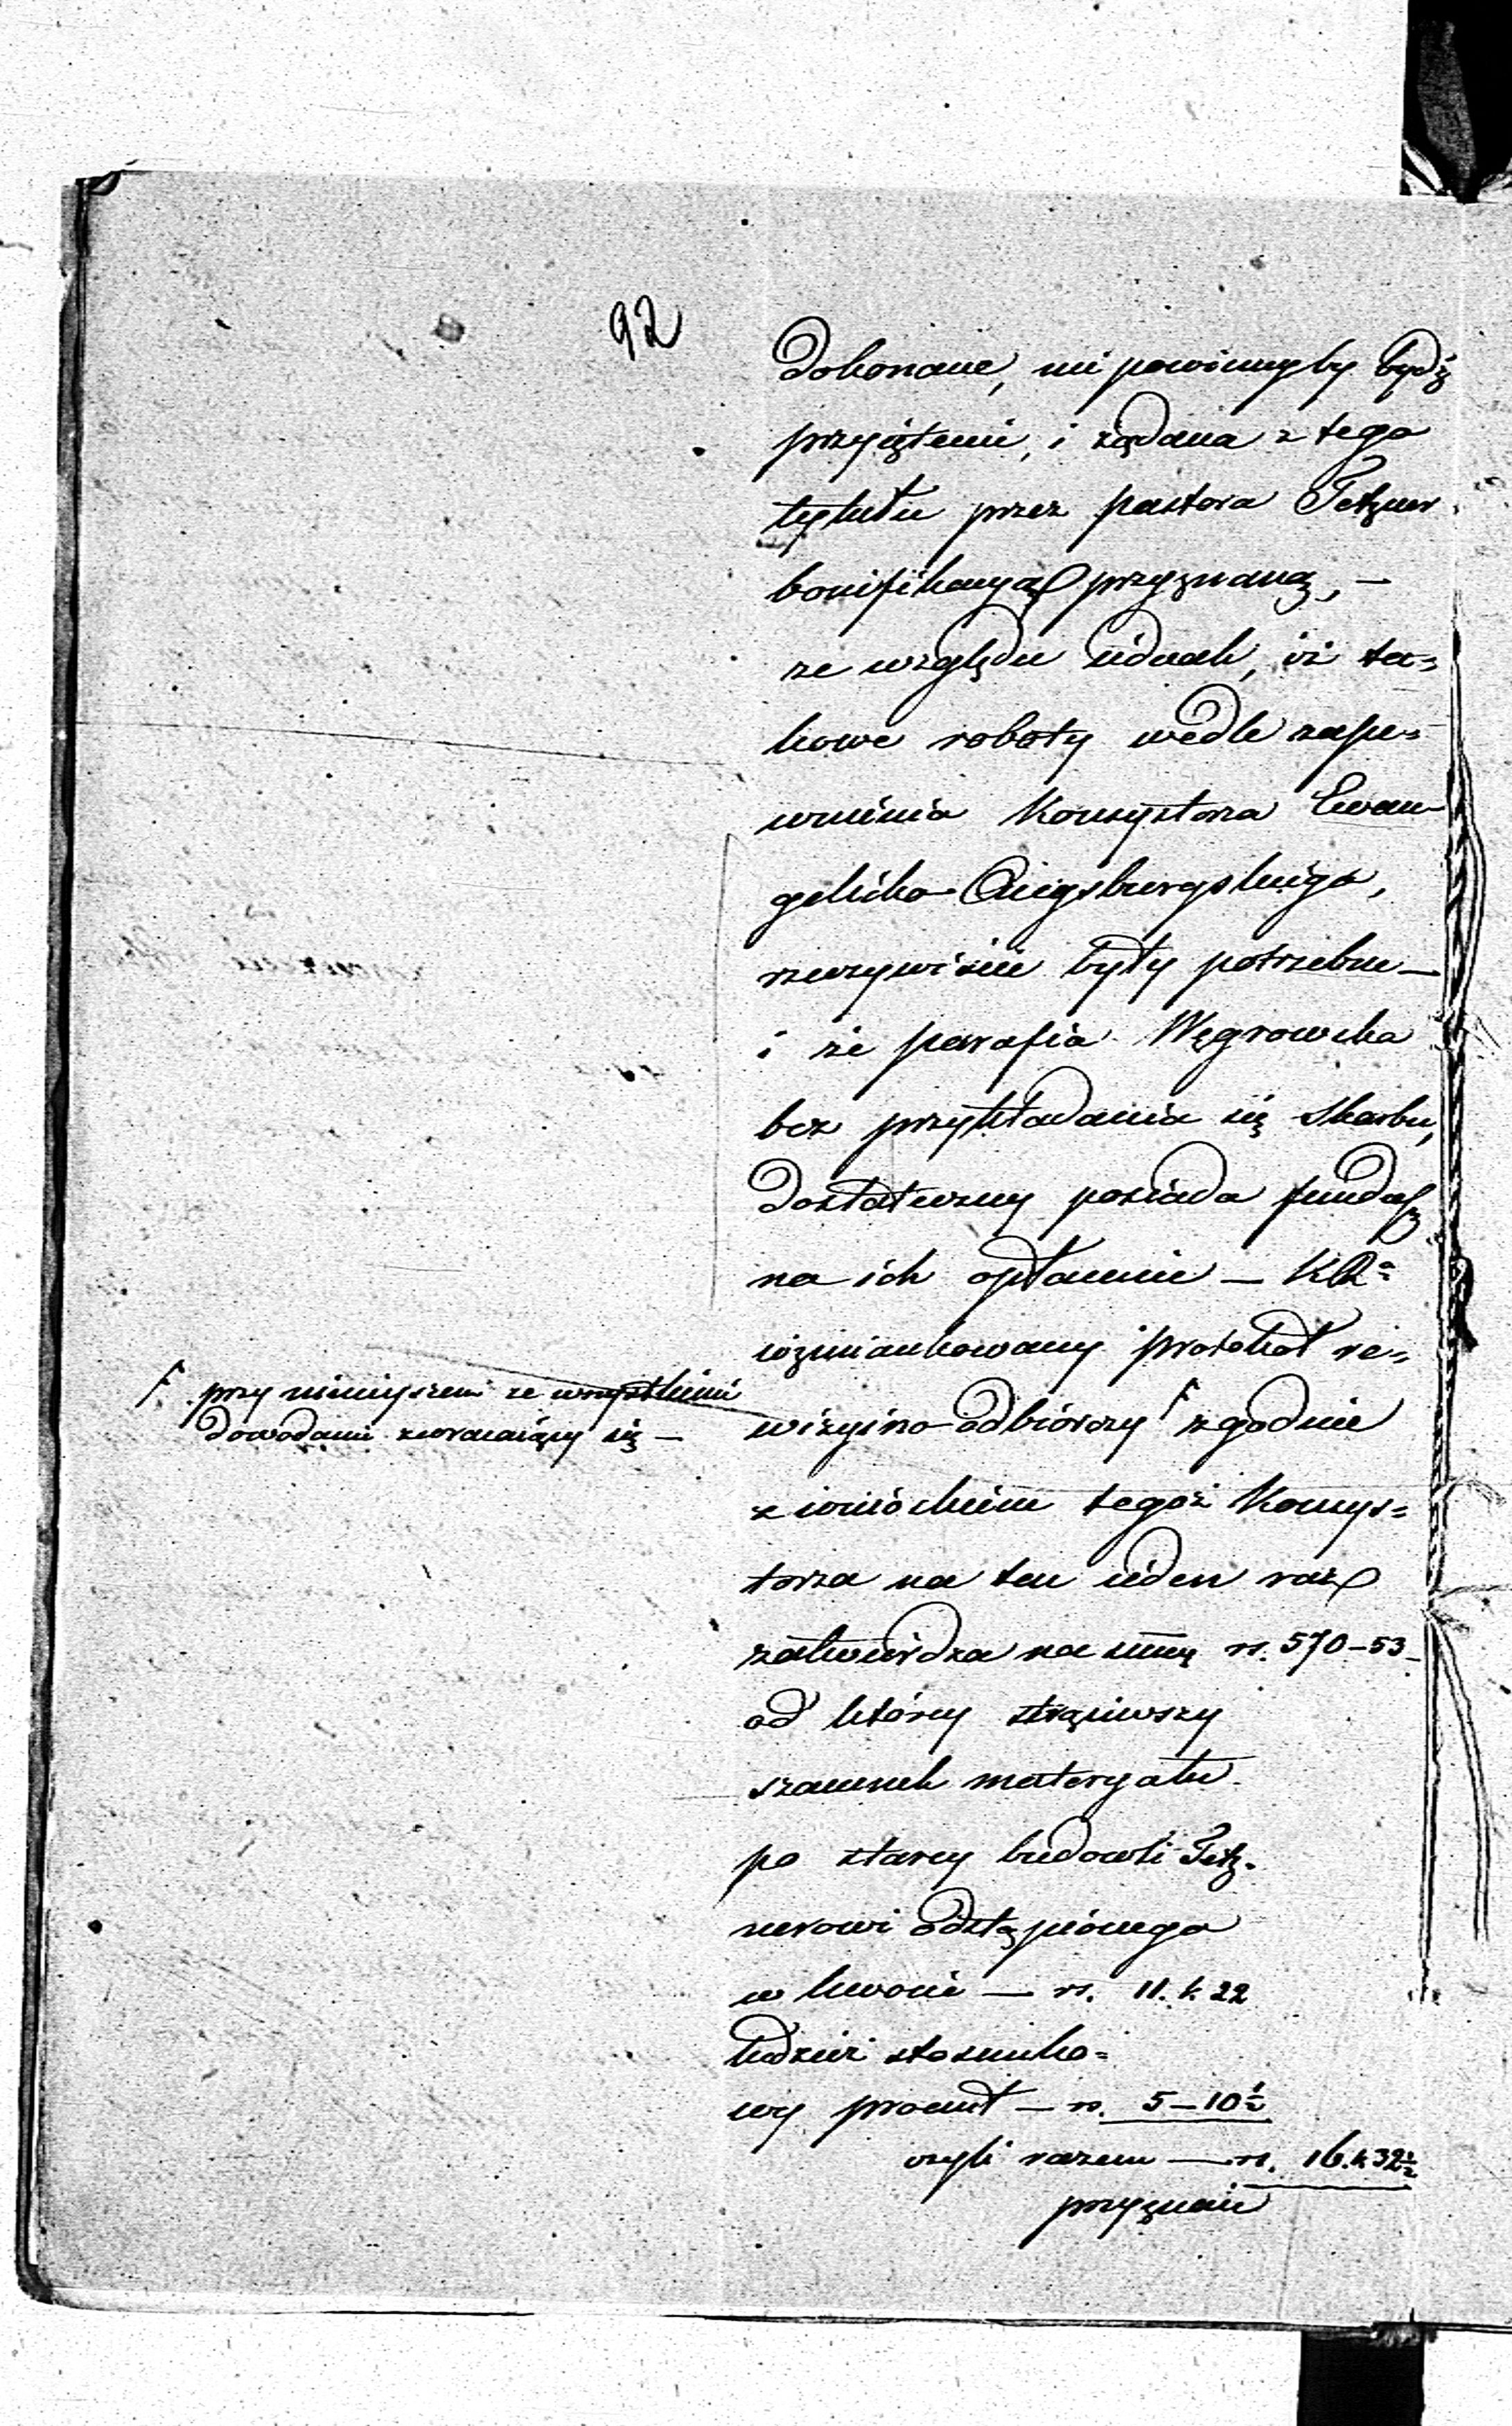 92
dokonane, nie powinnyby bydź
przyięteni, i żądana z tego
tytułu przez pastora Tetzner
bonifikacya przyznaną, —
ze względu iednak, iż ta=
kowe roboty wedle zape=
wnienia Konsystorza Ewan
gelicko-Augsburgskiego,
rzeczywiście były potrzebne —
i że parafia Węgrowska
bez przykładania się Skarbu,
dostateczny posiada fundusz
na ich opłacenie — KR=
wzmiankowany protokół re=
wizyino-odbiorczy F zgodnie
F przy ninieyszem ze wszystkiemi
dowodami zwracaiący się —
z wnioskiem tegoż Konsys=
torza na ten ieden raz
zatwierdza na summę rs. 570-53
od którey strąciwszy
szacunek materyału
po starey budowli Tetz-
nerowi odstąpionego
w kwocie — rs. 11. k 22
tudzież stosunko=
wy procent — rs. 5-10½
czyli razem — rs. 16. k 32½
przyznaie